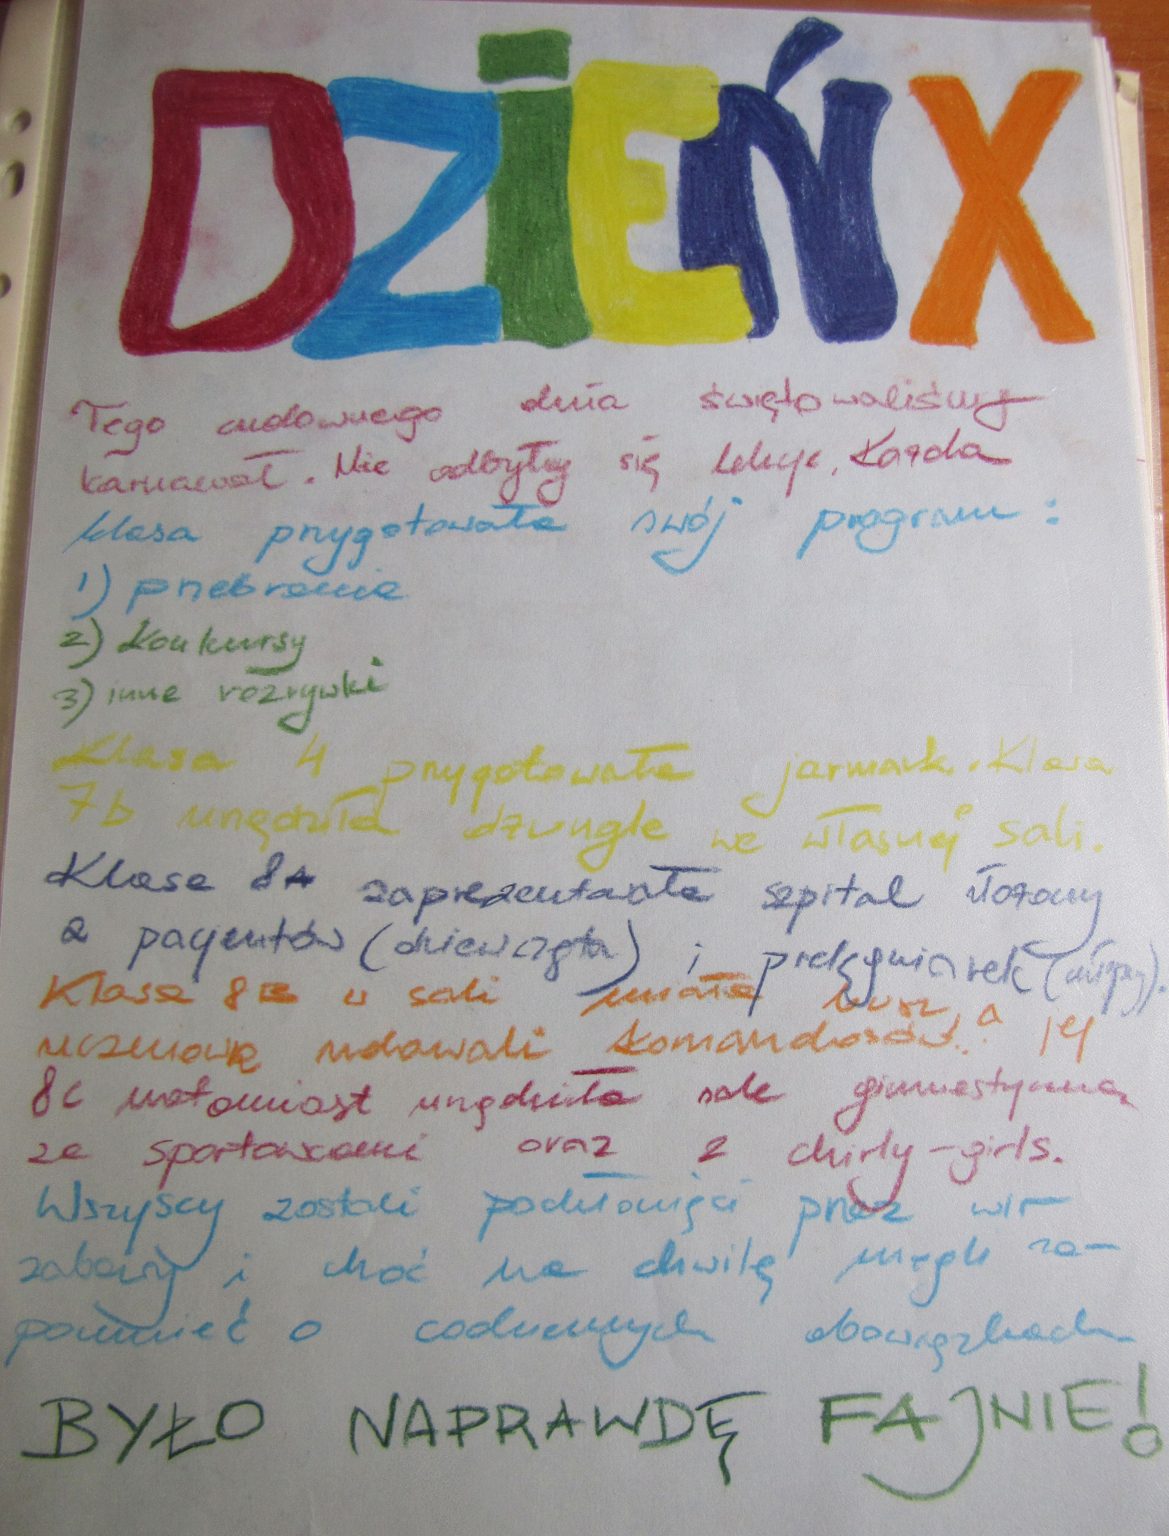 DZIEŃ X
Tego cudownego dnia świętowaliśmy
karnawał. Nie odbyły się lekcje. Każda
klasa przygotowała swój program:
1) przebranie
2) konkursy
3) inne rozrywki
Klasa 4 przygotowała jarmark. Klasa
7b urządziła dżungle we własnej sali.
Klasa 8A zaprezentowała szpital złożony
z pacjentów (dziewczęta) i pielęgniarek (chłopcy).
Klasa 8B w sali miała busz, a
uczniowie udawali komandosów.
8c natomiast urządziła sale gimnastyczną
ze sportowcami oraz z chirly-girls.
Wszyscy zostali pochłonięci przez wir
zabawy i choć na chwilę mogli za-
pomnieć o codziennych obowiązkach
BYŁO NAPRAWDĘ FAJNIE!